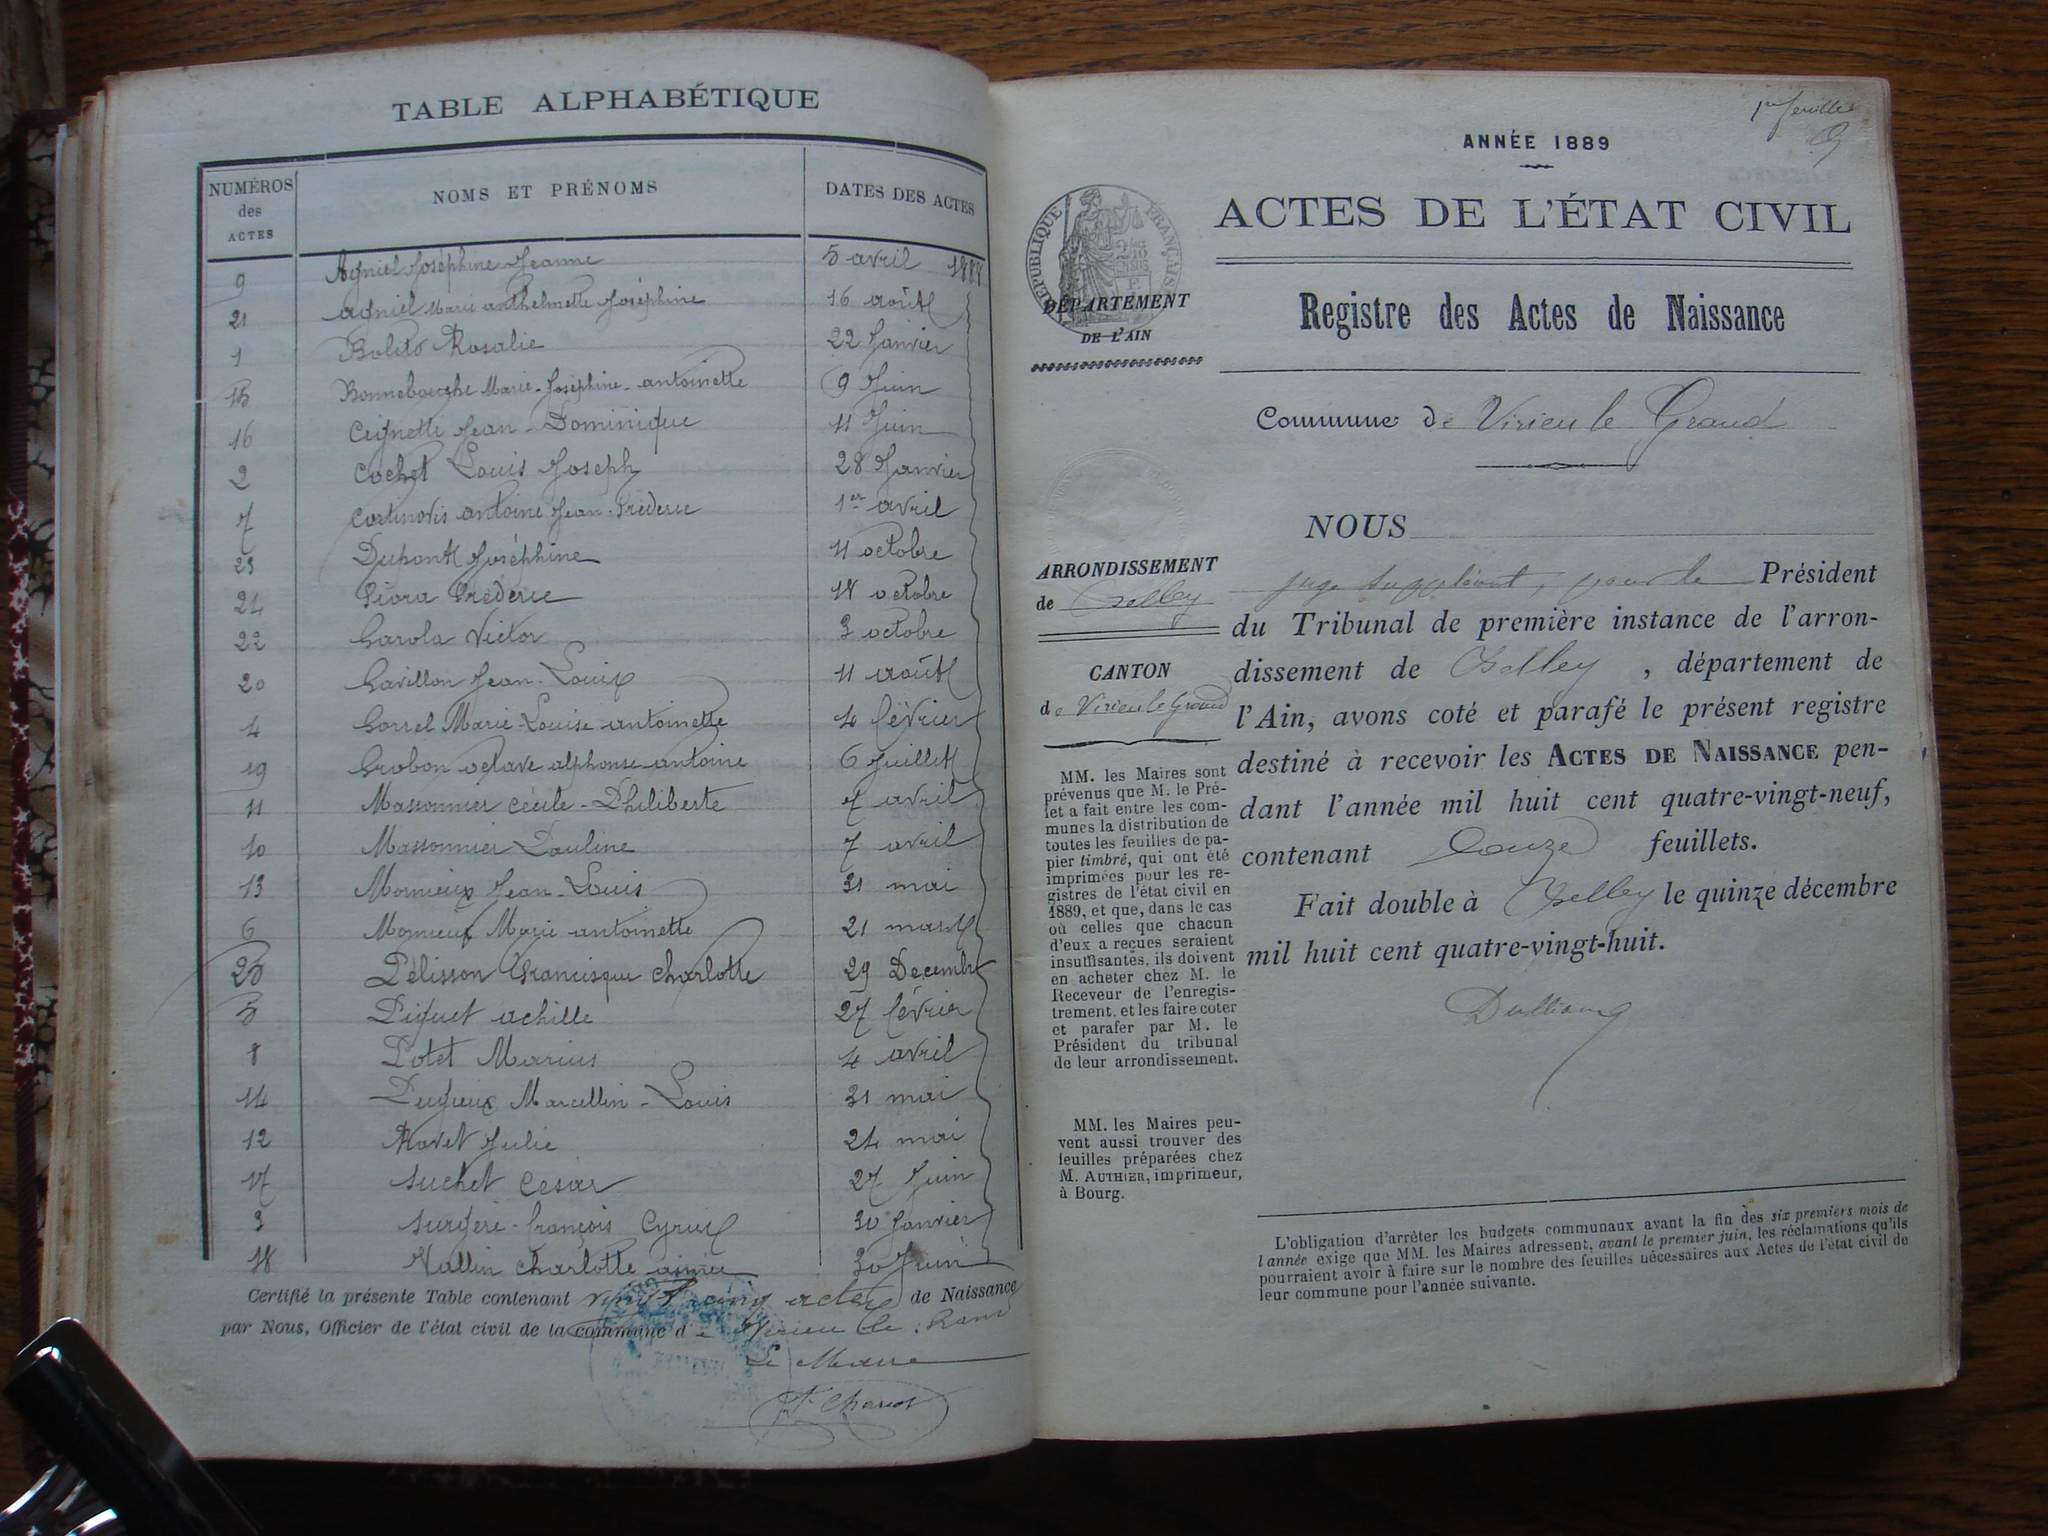 TABLE ALPHABÉTIQUE
NUMÉROS des ACTES NOMS ET PRÉNOMS DATES DES ACTES
9 Agniel Joséphine Jeanne 5 avril 1888
21 Agniel Marie anthelmette Joséphine 16 août
1 Rosalie 22 Janvier
15 Marie-Joséphine-antoinette 9 Juin
16 Jean-Dominique 11 Juin
2 Cochet Louis Joseph 28 Janvier
7 Cortinovis antoine Jean-Frédéric 1er avril
23 Dupont Joséphine 11 octobre
24 Fiora Frédéric 18 octobre
22 Garola Victor 3 octobre
20 Gavillon Jean-Louis 11 août
4 Gorrel Marie-Louise-antoinette 4 février
19 Grobon octave alphonse antoine 6 Juillet
11 Massonnier Cécile-Philiberte 7 avril
10 Massonnier Pauline 7 avril
13 Monnieux Jean-Louis 31 mai
6 Monnieux Marie antoinette 21 mars
25 Pélisson Francisque Charlotte 29 Decembre
5 Piquet achille 27 février
8 Potet Marius 4 avril
14 Pugieux Marcellin-Louis 31 mai
12 Ravet Julie 24 mai
17 Suchet César 27 Juin
3 Surgère-françois Cyrus 30 Janvier
18 Vallin Charlotte aimée 30 Juin
Certifié la présente Table contenant vingt cinq actes de Naissance
par Nous, Officier de l'état civil de la commune de Virieu le Grand
Le Maire
Charcot
1er feuillet
ANNÉE 1889
ACTES DE L'ÉTAT CIVIL
RÉPUBLIQUE FRANÇAISE
DÉPARTEMENT
DE L'AIN
Registre des Actes de Naissance
Commune de Virieu le Grand
ARRONDISSEMENT
de Belley
CANTON
de Virieu le Grand
MM. les Maires sont
prévenus que M. le Pré-
fet a fait entre les com-
munes la distribution de
toutes les feuilles de pa-
pier timbré, qui ont été
imprimées pour les re-
gistres de l'état civil en
1889, et que, dans le cas
où celles que chacun
d'eux a reçues seraient
insuffisantes, ils doivent
en acheter chez M. le
Receveur de l'enregis-
trement, et les faire coter
et parafer par M. le
Président du tribunal
de leur arrondissement.
MM. les Maires peu-
vent aussi trouver des
feuilles préparées chez
M. AUTHIER, imprimeur,
à Bourg.
NOUS
juge suppléant, pour le Président
du Tribunal de première instance de l'arron-
dissement de Belley, département de
l'Ain, avons coté et parafé le présent registre
destiné à recevoir les ACTES DE NAISSANCE pen-
dant l'année mil huit cent quatre-vingt-neuf,
contenant douze feuillets.
Fait double à Belley le quinze décembre
mil huit cent quatre-vingt-huit.
L'obligation d'arrêter les budgets communaux avant la fin des six premiers mois de
l'année exige que MM. les Maires adressent, avant le premier juin, les réclamations qu'ils
pourraient avoir à faire sur le nombre des feuilles nécessaires aux Actes de l'état civil de
leur commune pour l'année suivante.